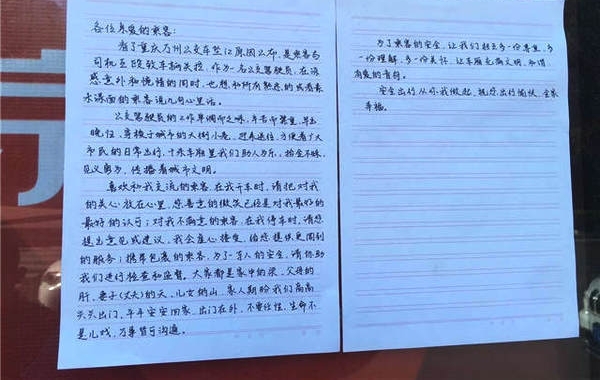 各位亲爱的乘客:
看了重庆万州公交车坠江原因公布,是乘客与
司机互殴致车辆失控,作为一名公交驾驶员,在深
感意外和惋惜的同时,也想和所有熟悉的或者素
未谋面的乘客说几句心里话。
公交驾驶员的工作单调而乏味,辛苦而繁重,早出
晚归,穿梭于城市的大街小巷,迎来送往,方便着广大
市民的日常出行,十米车厢里我们助人为乐、拾金不昧,
见义勇为,传播着城市文明。
喜欢和我交流的乘客,在我开车时,请把对我
的关心放在心里,您善意的微笑已经是对我最好的
最好的认可;对我不满意的乘客,在我停车时,请您
提出意见或建议,我会虚心接受,给您提供更周到
的服务;携带包裹的乘客,为了万人的安全,请协助
我们进行检查和监督。大家都是家中的梁,父母的
肝,妻子(丈夫)的天,儿女的山,家人期盼我们高高
兴兴出门,平平安安回家,出门在外,不要任性,生命不
是儿戏,万事皆可沟通。
为了乘客的安全,让我们相互多一份尊重,多
一份理解,多一份关怀,让车厢充满文明、和谐、
有爱的音符。
安全出行从你我做起,祝您出行愉快,全家
幸福。